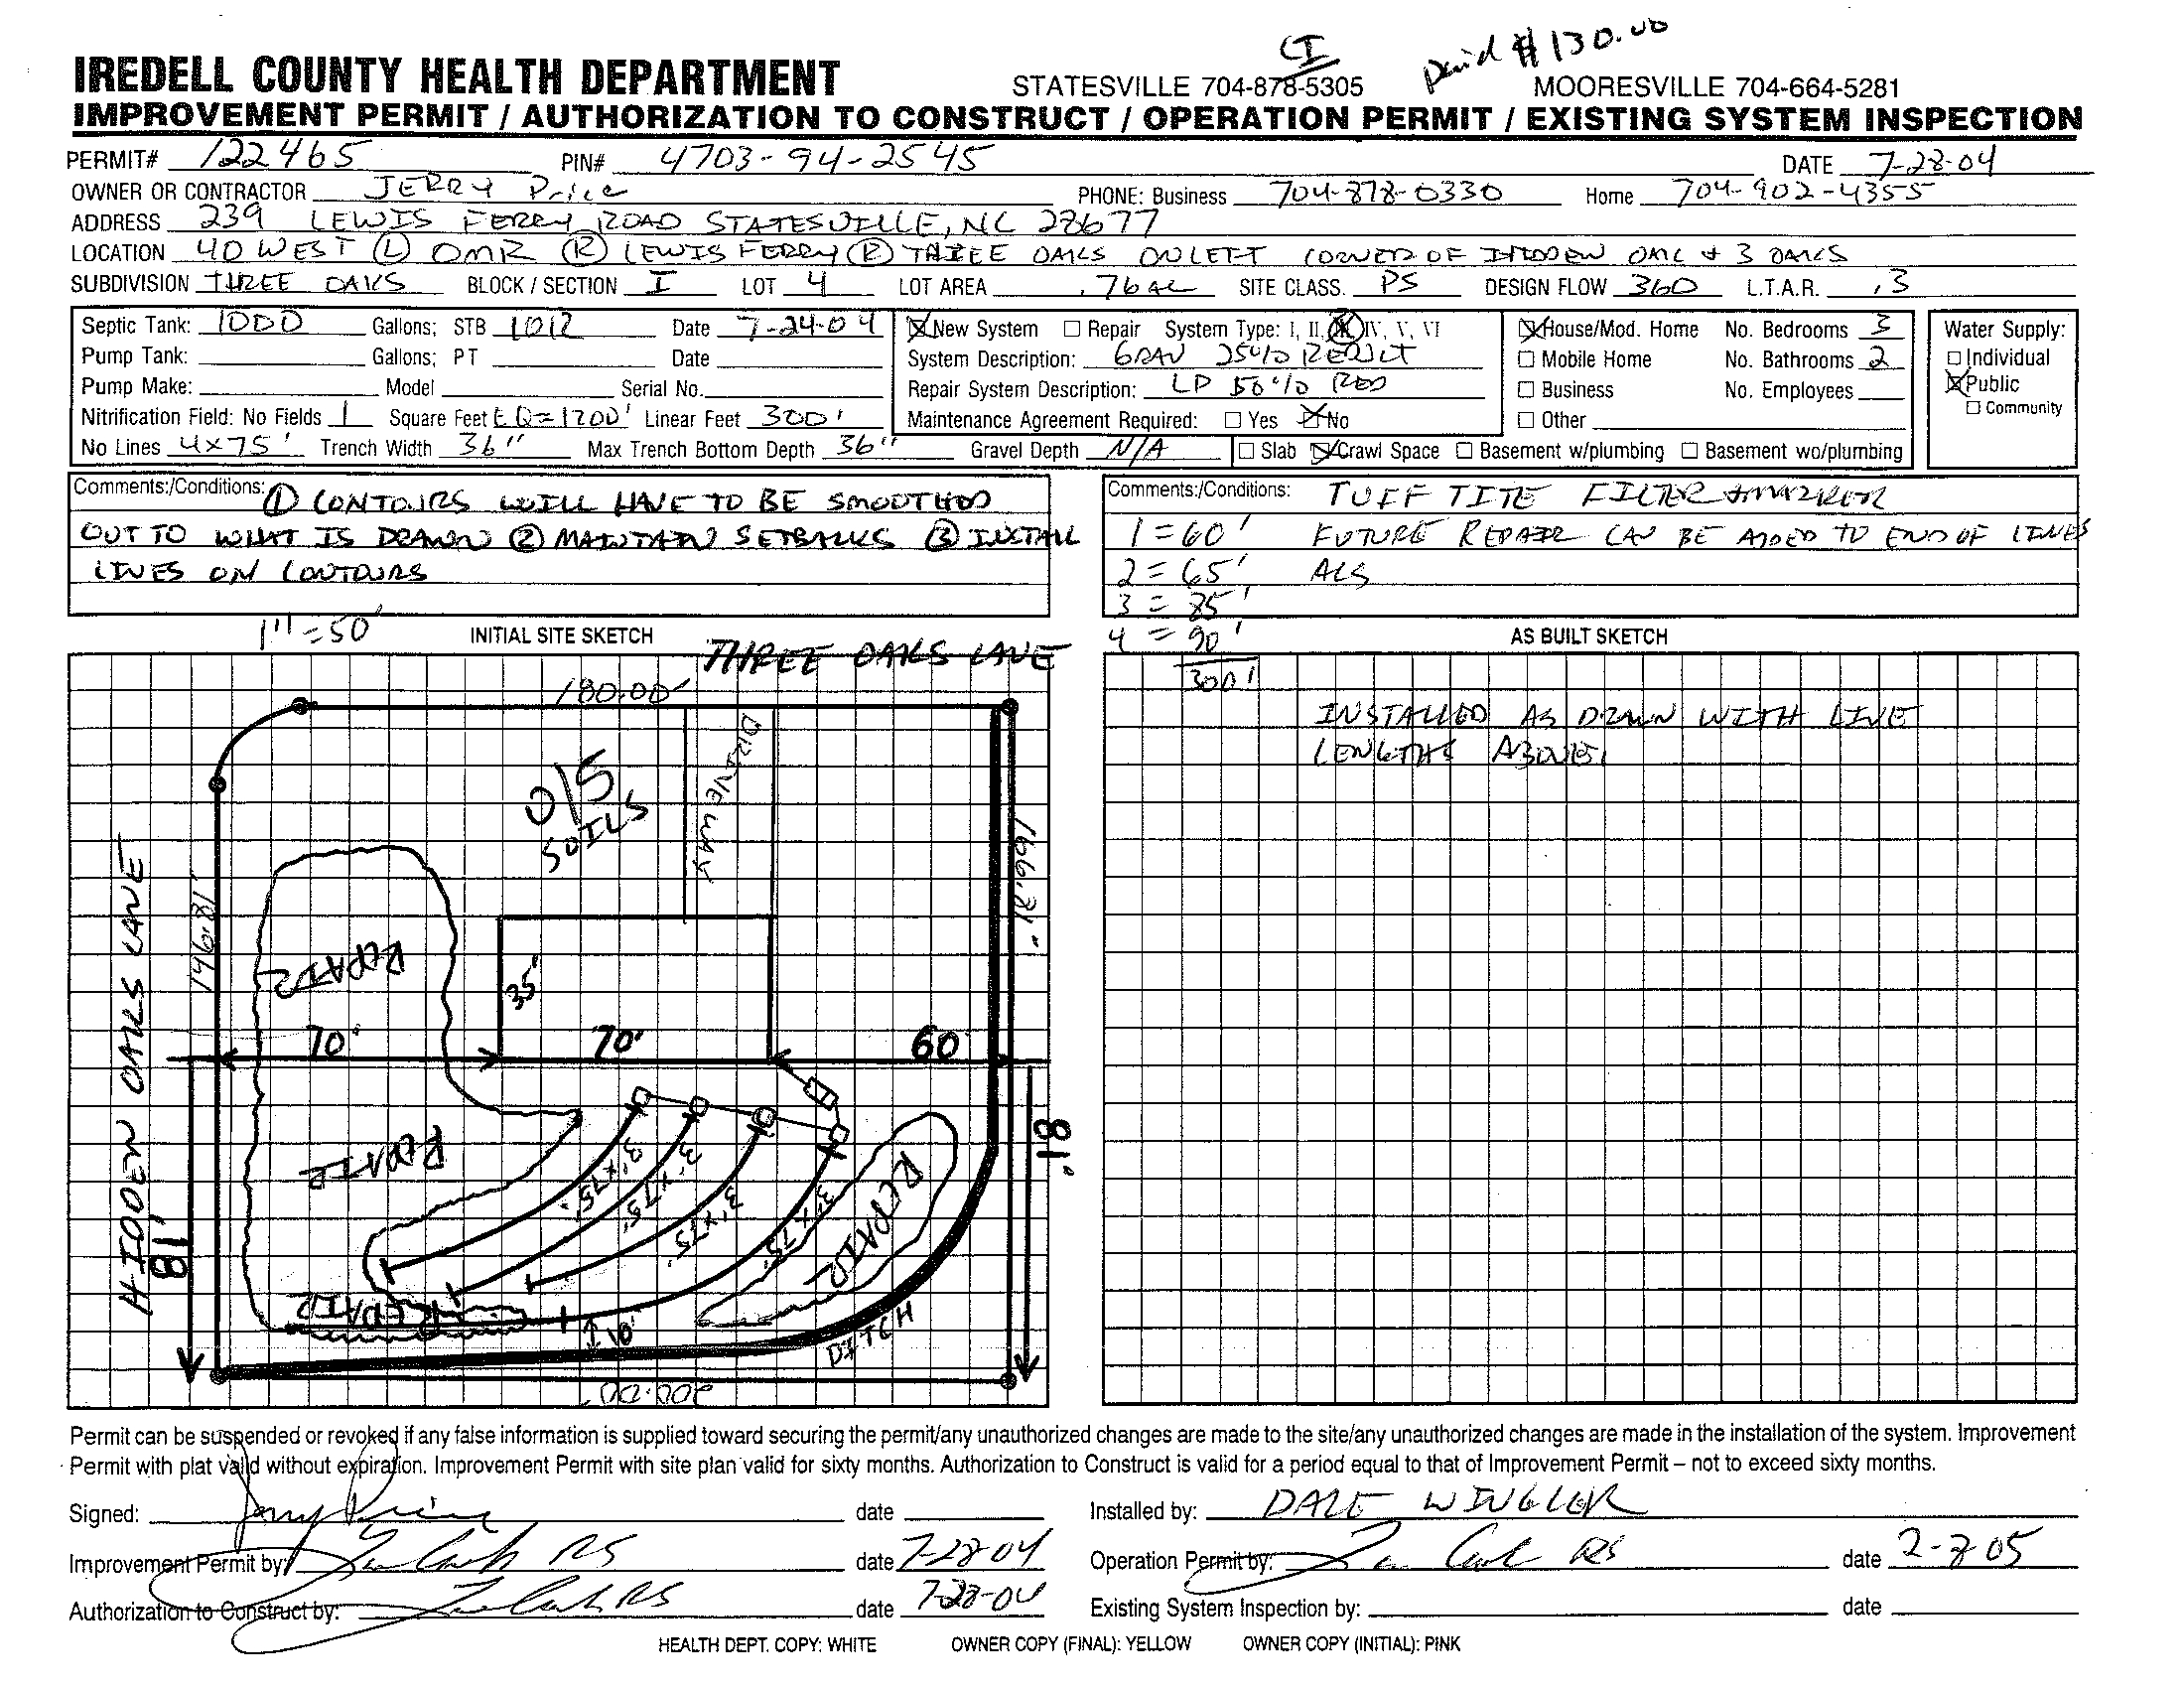 CI
paid $130.00
IREDELL COUNTY HEALTH DEPARTMENT STATESVILLE 704-878-5305 MOORESVILLE 704-664-5281
IMPROVEMENT PERMIT / AUTHORIZATION TO CONSTRUCT / OPERATION PERMIT / EXISTING SYSTEM INSPECTION
PERMIT# 122465 PIN# 4703-94-2545 DATE 7-28-04
OWNER OR CONTRACTOR JERRY Price PHONE: Business 704-878-0330 Home 704-902-4355
ADDRESS 239 LEWIS FERRY ROAD STATESVILLE, NC 28677
LOCATION 40 WEST (L) OMR (R) LEWIS FERRY (R) THREE OAKS ON LEFT CORNER OF HIDDEN OAK + 3 OAKS
SUBDIVISION THREE OAKS BLOCK / SECTION I LOT 4 LOT AREA .76 AC SITE CLASS. PS DESIGN FLOW 360 L.T.A.R. .3
Septic Tank: 1000 Gallons; STB 1012 Date 7-24-04 New System Repair System Type: I, II, III, IV, V, VI House/Mod. Home No. Bedrooms 3 Water Supply:
Pump Tank: Gallons; PT Date System Description: GRAV 25% REDUCT Mobile Home No. Bathrooms 2 Individual
Pump Make: Model Serial No. Repair System Description: LP 50% RED Business No. Employees Public
Nitrification Field: No Fields 1 Square Feet EQ=1200' Linear Feet 300' Maintenance Agreement Required: Yes No Other Community
No Lines 4x75' Trench Width 36" Max Trench Bottom Depth 36" Gravel Depth N/A Slab Crawl Space Basement w/plumbing Basement wo/plumbing
Comments:/Conditions: (1) CONTOURS WILL HAVE TO BE SMOOTHED
OUT TO WHAT IS DRAWN (2) MAINTAIN SETBACKS (3) INSTALL
LINES ON CONTOURS
Comments:/Conditions: TUFF TITE FILTER + MARKER
1 = 60' FUTURE REPAIR CAN BE ADDED TO END OF LINES
2 = 65' ALS
3 = 85'
4 = 90'
300'
1" = 50' INITIAL SITE SKETCH
THREE OAKS LANE
180.00'
DRIVEWAY
O/S
SOILS
166.81'
HIDDEN OAKS LANE
146.81'
REPAIR
35'
70'
70'
60
REPAIR
3'x75'
3'x75'
3'x75'
3'x75'
REPAIR
81'
81'
REPAIR
10'
DITCH
200.00'
AS BUILT SKETCH
INSTALLED AS DRAWN WITH LINE
LENGTHS ABOVE.
Permit can be suspended or revoked if any false information is supplied toward securing the permit/any unauthorized changes are made to the site/any unauthorized changes are made in the installation of the system. Improvement
Permit with plat valid without expiration. Improvement Permit with site plan valid for sixty months. Authorization to Construct is valid for a period equal to that of Improvement Permit – not to exceed sixty months.
Signed: Jerry Price date Installed by: DALE WINGLER
Improvement Permit by: RS date 7-28-04 Operation Permit by: RS date 2-8-05
Authorization to Construct by: RS date 7-28-04 Existing System Inspection by: date
HEALTH DEPT. COPY: WHITE OWNER COPY (FINAL): YELLOW OWNER COPY (INITIAL): PINK